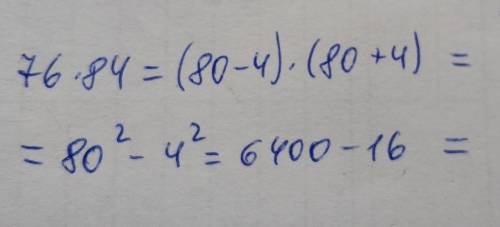 76·84 = (80-4)·(80+4) =
= 80² - 4² = 6400 - 16 =